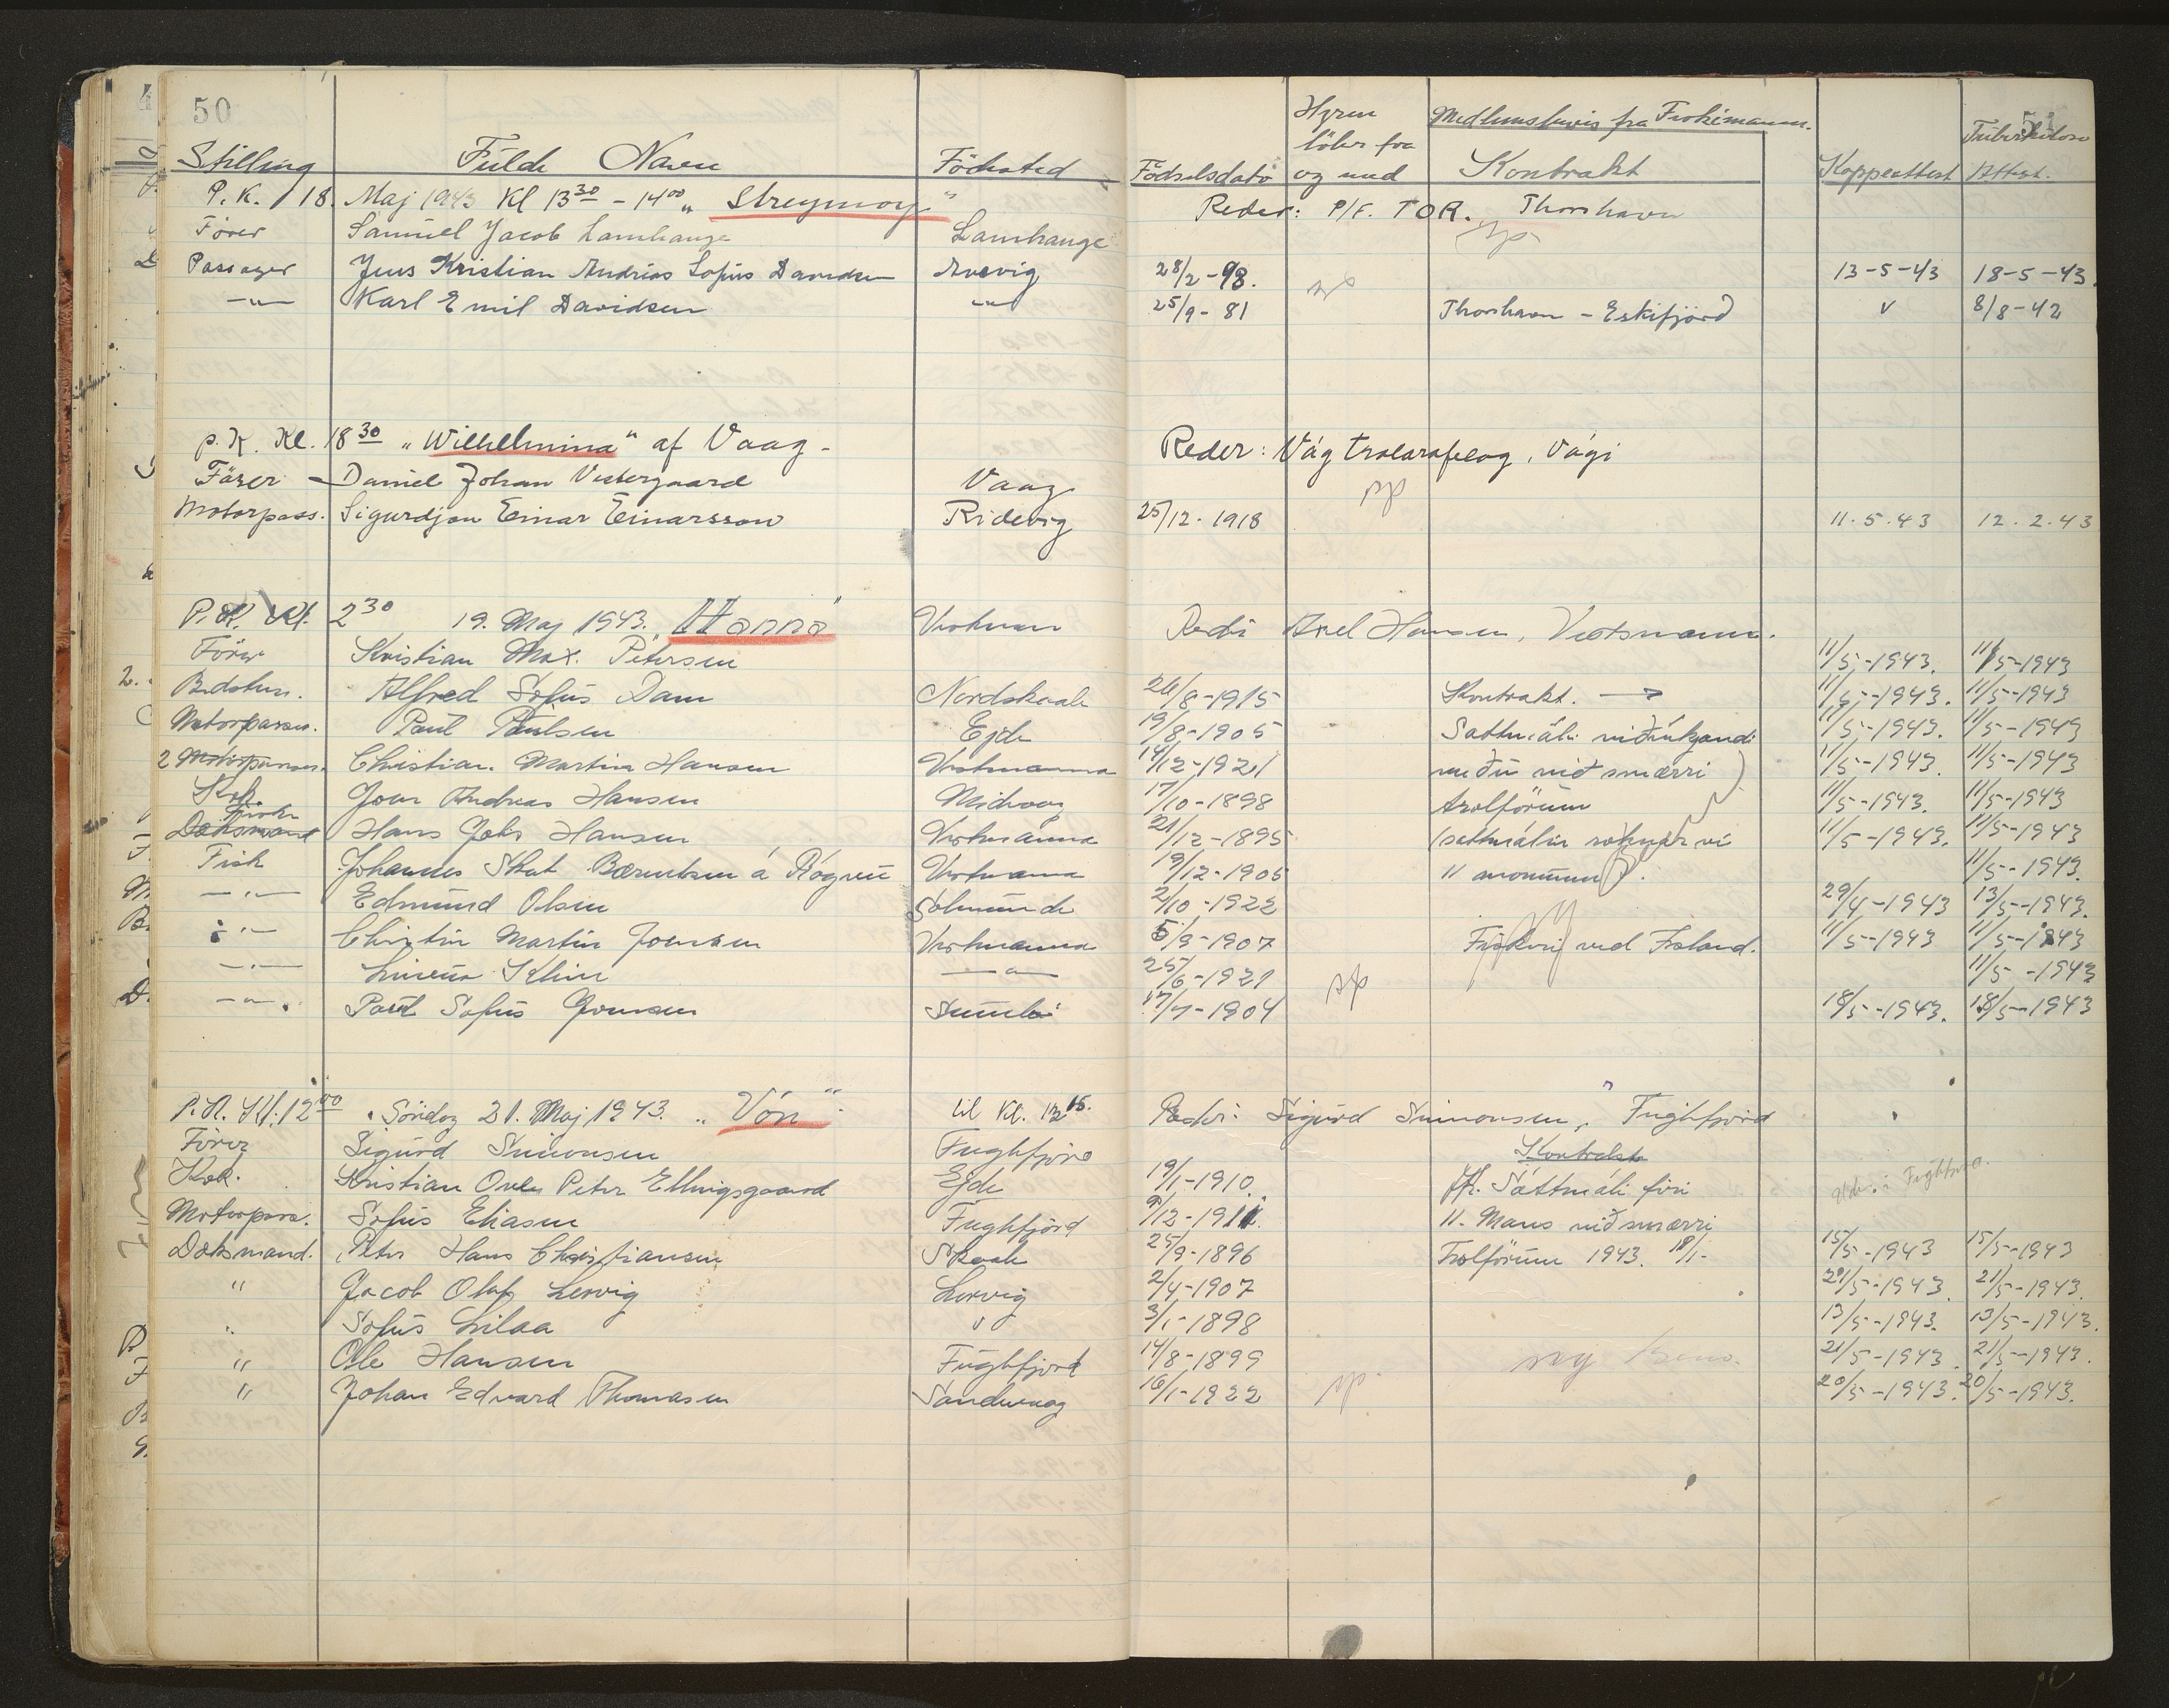 50
Stilling Fulde Navn Födested Födselsdato Hyren löber fra og med Medlemsbevis fra Kontrakt Koppeattest Tuberkulose Attest. 51
P.K. 18. Maj 1943 Kl 13 30 - 14 00 „Streymoy" Reder: P/F. TOR. Thorshavn
Förer Samuel Jacob Lamhauge Lamhauge
Passager Jens Kristian Andrias Sofus Davidsen Arevig 28/2-98. 13-5-43 18-5-43.
—"— Karl Emil Davidsen —"— 25/9-81 Thorshavn - Eskifjörd v 8/8-42
P.K. Kl. 18 30 „Wilhelmina" af Vaag - Reder: Vág , Vági
Förer - Daniel Johan Vestergaard Vaag
Motorpass. Sigurdjon Einar Einarsson Ridevig 25/12-1918 11.5.43 12.2.43
P.K. Kl. 2 30 19. Maj 1943. Vestman Axel Hansen, Vestmann.
Förer Kristian Max. Petersen 11/5-1943. 11/5-1943
Bedstem. Alfred Sofus Dam Nordskaale 26/8-1915 Kontrakt. → 11/5-1943. 11/5-1943
Motorpasser. Paul Paulsen Ejde 19/8-1905 Sáttmáli viðvíkjandi 11/5-1943. 11/5-1943
2 Motorpasser. Christian Martin Hansen Vestmanna 14/12-1921 við smærri 11/5-1943. 11/5-1943
Kok. Joen Andreas Hansen Midvaag 17/10-1898 trolförum 11/5-1943. 11/5-1943
Dæksmand Hans Jákr Hansen Vestmanna 21/12-1895 11/5-1943. 11/5-1943
Fisk Johannes Skat Bærentsen á Rógvu Vestmanna 19/12-1905 11 monnum). 11/5-1943.
—"— Edmund Olsen 2/10-1922 29/4-1943 13/5-1943.
—"— Christin Martin Joensen Vestmanna 5/9-1907 Fiskeri ved Island. 11/5-1943 11/5-1943
—"— —"— 25/6-1921 11/5-1943
—"— Poul Sofus Joensen Sumbö 17/7-1904 18/5-1943. 18/5-1943
P.K. Kl. 12 00 21. Maj 1943. „Vón". til Kl. 12 15. Reder: Sigurd Simonsen, Fuglefjord
Förer Sigurd Simonsen Fuglefjord Kontrakt
Kok. Kristian Ove Peter Ellingsgaard Ejde 19/1-1910. Sáttmáli fyri
Motorpass. Sofus Eliasen Fuglefjord 11. Mans við smærri
Dæksmand. Peter Hans Christiansen Skaale 25/9-1896 Trolförum 1943. 15/5-1943 15/5-1943
" Jacob Olaf Lervig Lervig 2/4-1907 21/5-1943. 21/5-1943.
" Sofus Lilaa " 3/1-1898 13/5-1943. 13/5-1943.
" Ole Hansen Fuglefjord 14/8-1899 21/5-1943. 21/5-1943.
" Johan Edvard Thomasen Sandvaag 16/1-1922 20/5-1943. 20/5-1943.